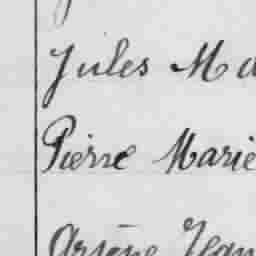 Jules Ma
Pierre Marie
Arsène Jean